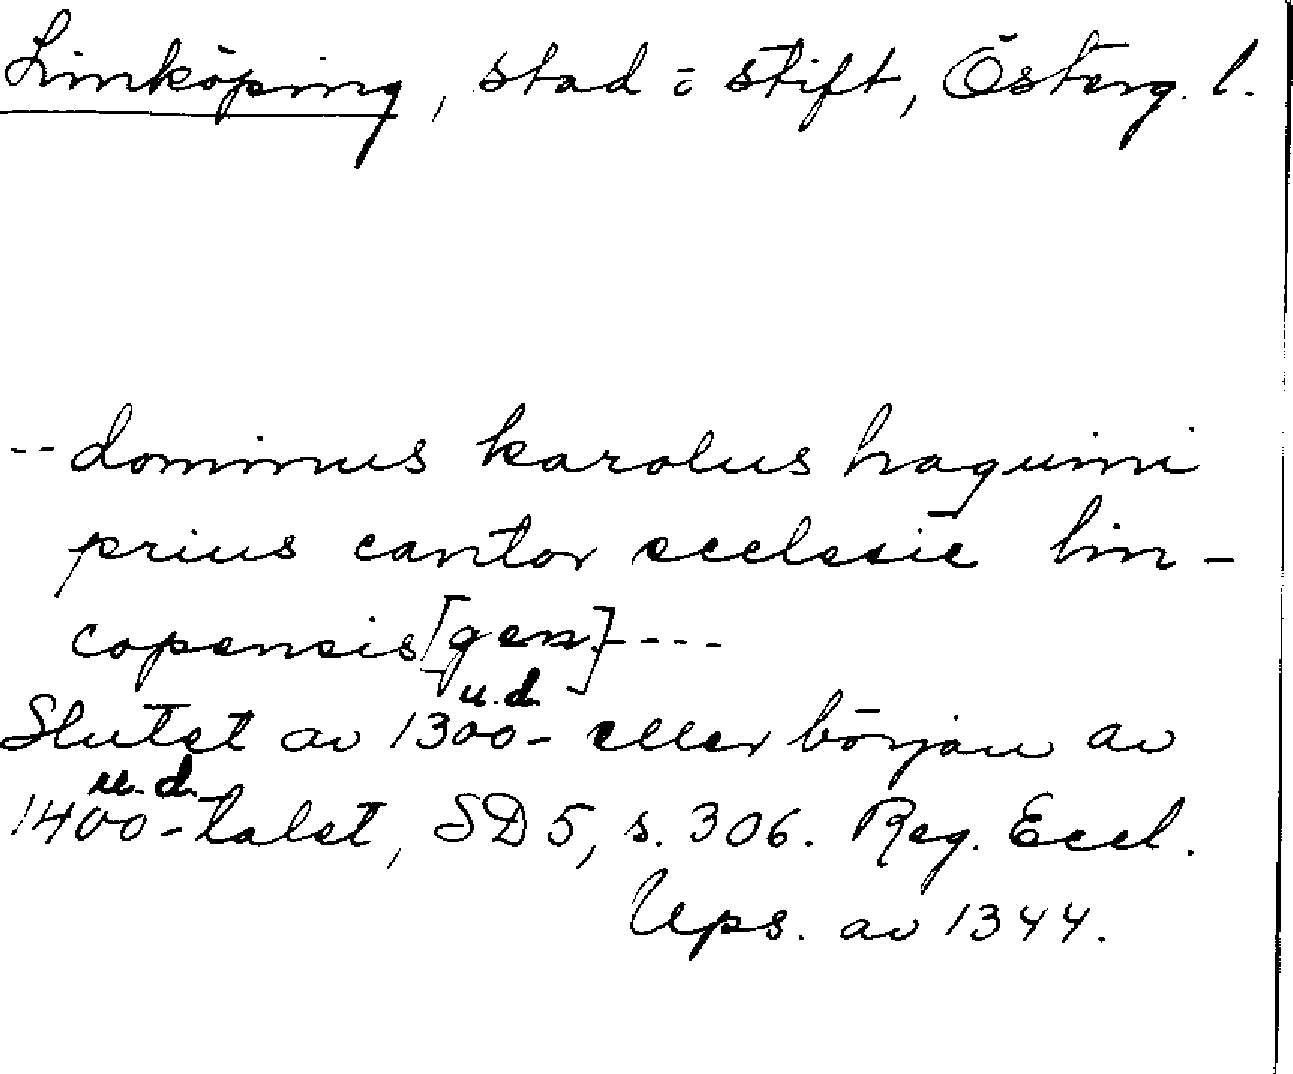 Linköping, stad o stift, Österg. l.
-- dominus karolus haquini
prius cantor ecclesie lin-
copensis [gen] ----
u.d.
Slutet av 1300- eller början av
u.d.
1400-talet, SD 5, s. 306. Reg. Eccl.
Ups. av 1344.